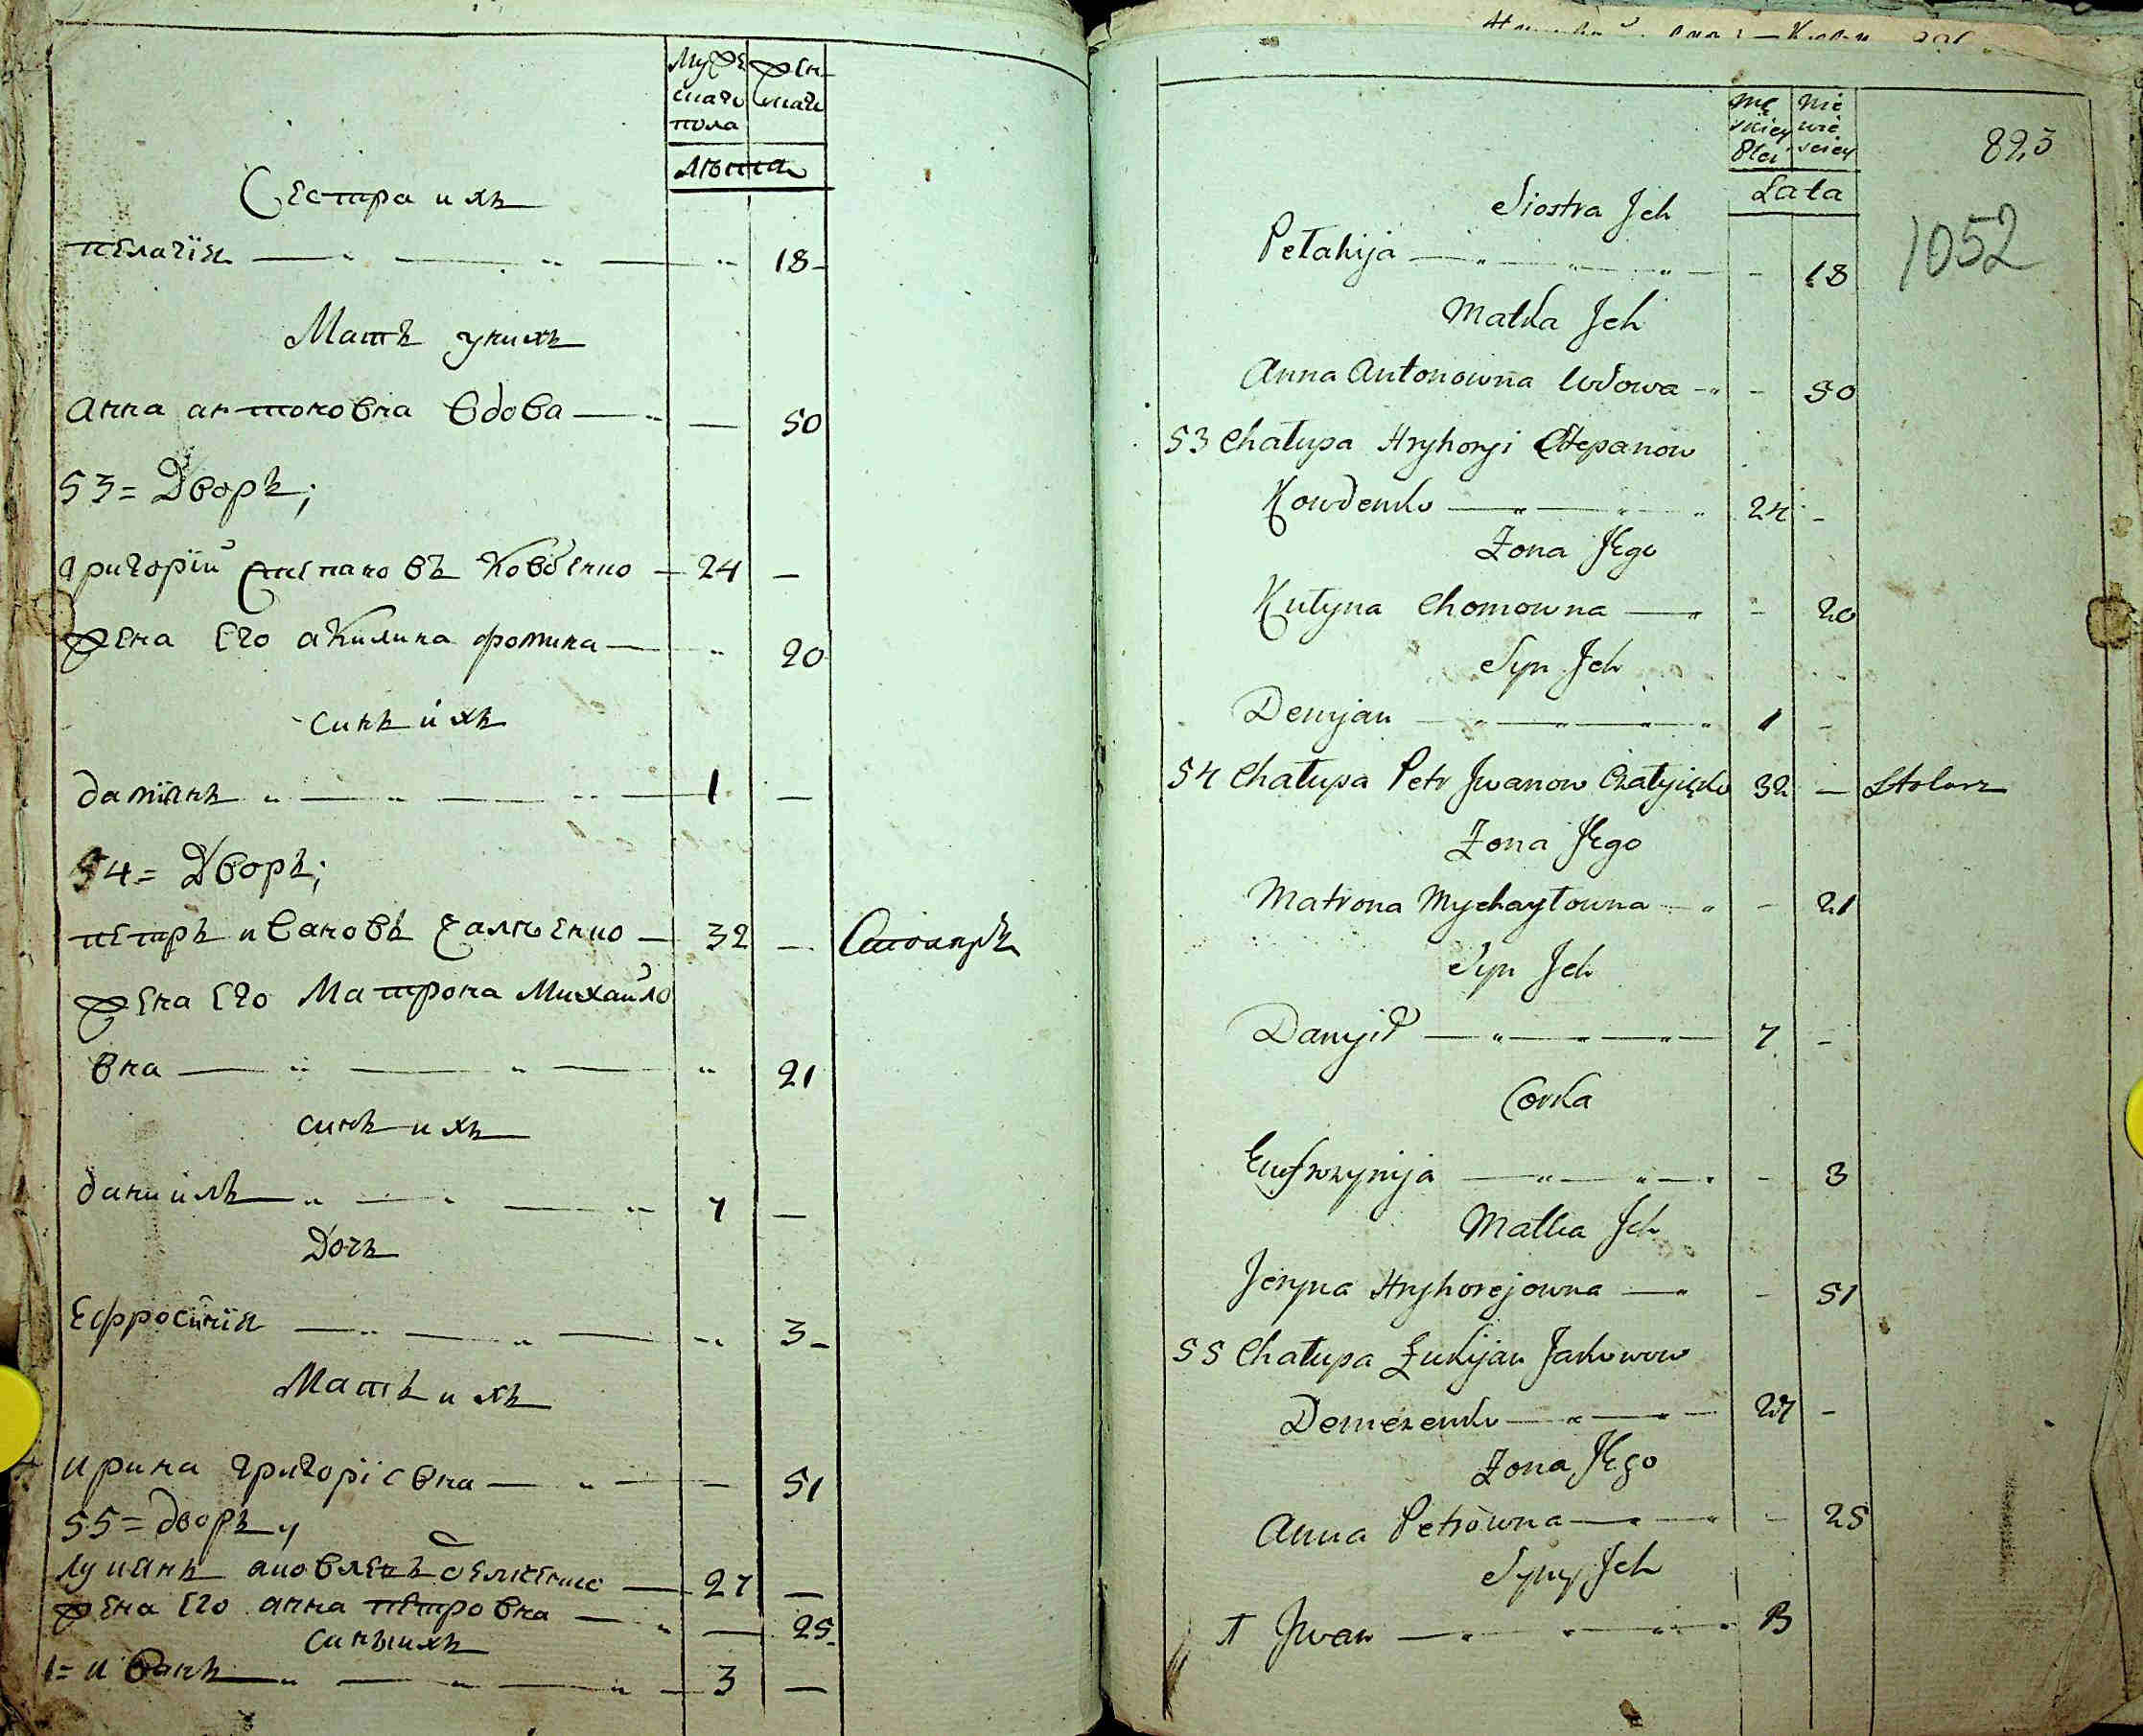 Муже
скаго
пола
жен
скаго
лѣта
Сестра ихъ
пелагія — „ — „ — „ 18 -
Мать унихъ
Анна антоновна вдова — „ — 50
53 = Дворъ;
григорій степановъ Ковбенко — 24 —
жена его акилина фомина — „ 20
синъ ихъ
даміянъ „ — „ — „ — 1 —
54 = Дворъ;
петръ ивановъ Галѣенко — 32 — Столяръ
жена его Матрона Михайло
вна — „ — „ — „ 21
синъ ихъ
даніилъ — „ — „ — „ 7 —
Дочь
Ефросинія — „ — „ — „ 3 -
Мать ихъ
ирина григоріевна — „ — — 51
55 = дворъ „
лукіянъ яковлевъ — 27 —
жена его анна петровна — „ — 25 -
синыихъ
1 = иванъ — „ — „ — „ — 3 —
Mę
skiey
Płci
Nie
wie
sciey
Lata
823
1052
Siostra Jch
Pełahija — „ — „ — „ — - 18
Matka Jch
Anna Antonowna Wdowa — „ - 50
53 Chałupa Hryhoryi Stepanow
Kowdenko — „ — „ — „ 24 -
Żona Jego
Kułyna Chomowna — „ - 20
Syn Jch
Demjan — „ — „ — „ — „ 1 -
54 Chałupa Petr Jwanow 32 — Stolarz
Żona Jego
Matrona Mychayłowna — „ - 21
Syn Jch
Danyił — „ — „ — „ — 7 -
Corka
Eufrozynija — „ — „ — „ - 3
Matka Jch
Jeryna Hryhorejowna — „ - 51
55 Chałupa Łukijan Jakowow
— „ — „ — 27 -
Żona Jego
Anna Petrowna — „ — „ - 25
Syny Jch
1 Jwan — „ — „ — „ 3